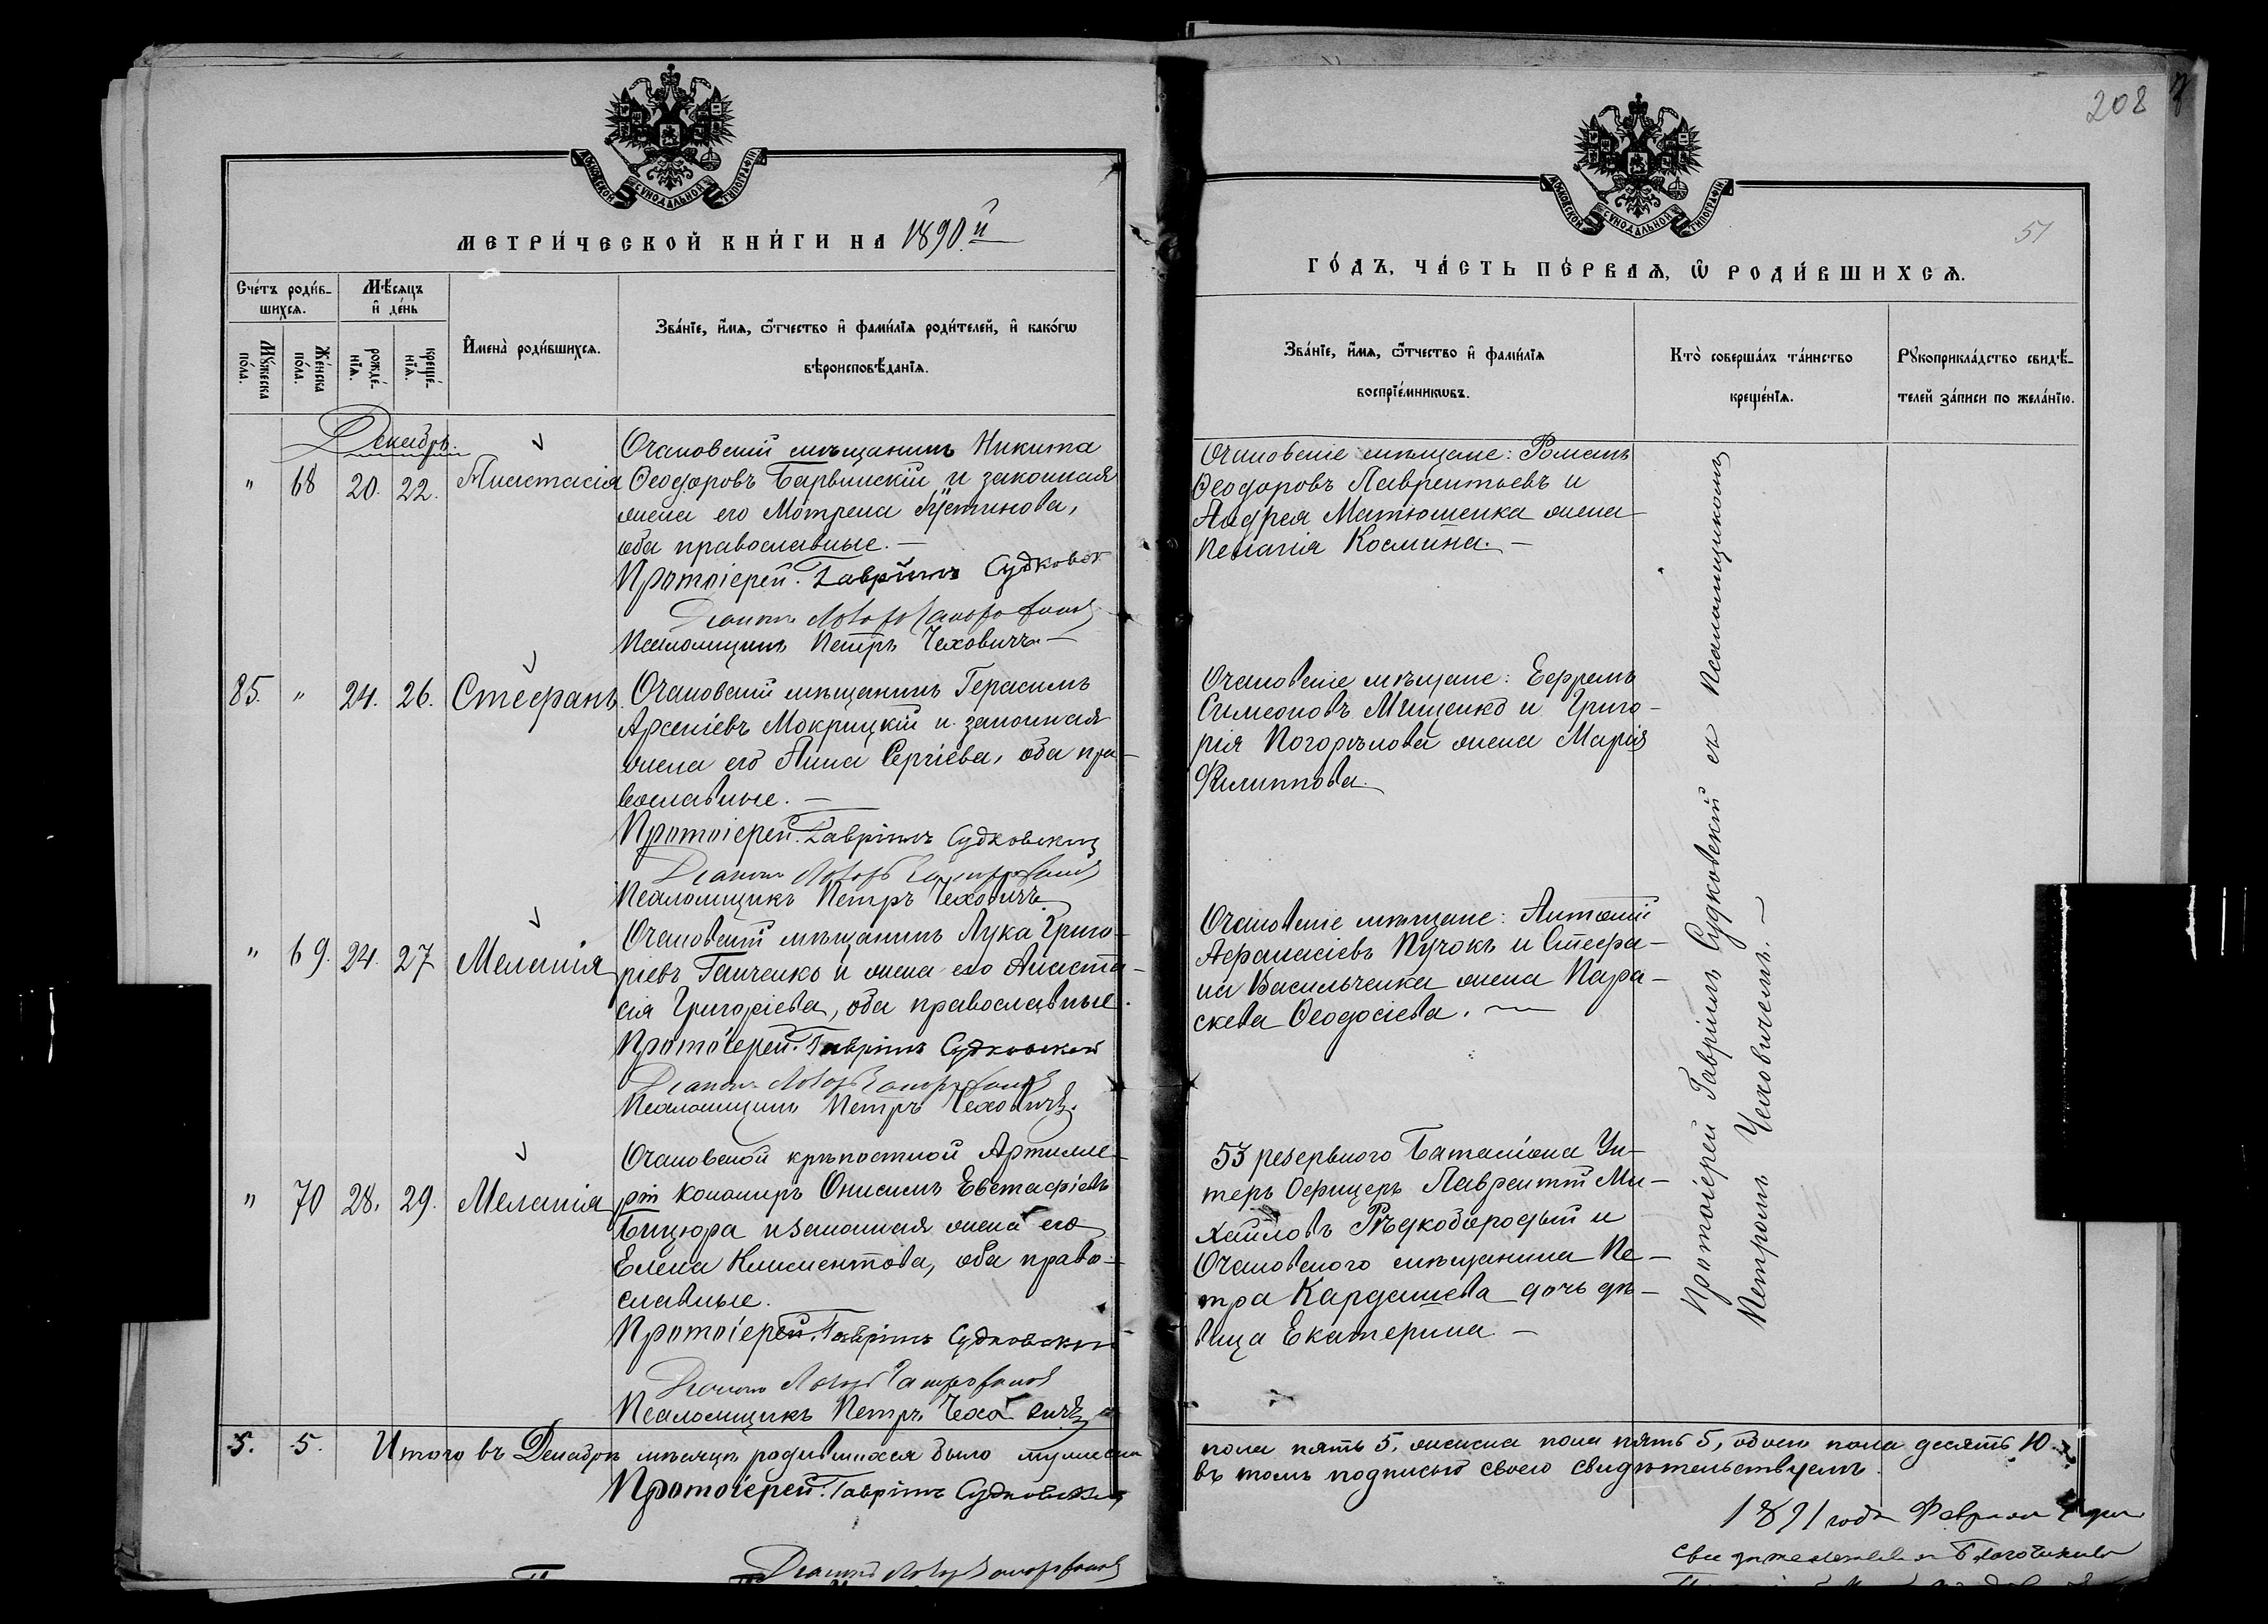 МОСКОВСКОЙ СѴНОДАЛЬНОЙ ТИПОГРАФІИ
МЕТРИ́ЧЕСКОЙ КНИ́ГИ НА 1890й
Сче́тъ роди́в-
шихсѧ.
Мѣ́сѧцъ
и҆ де́нь
Мꙋ́жеска
по́ла.
Же́нска
по́ла.
рожде́-
нїѧ.
креще́-
нїѧ.
И҆мена̀ роди́вшихсѧ.
Зва́нїе, и҆́мѧ, ѻ҆́тчество и҆ фами́лїѧ роди́телей, и҆ како́гѡ
вѣроисповѣ́данїѧ.
Декабрь.
" 68 20. 22. Анастасія
Очаковскій мѣщанинъ Никита
Ѳеодоровъ Барвинскій и законная
жена его Мотрена Іустинова,
оба православные. —
Протоіерей Гавріилъ Судковск
Діаконъ
Псаломщикъ Петръ Чеховичъ —
85. " 24. 26. Стефанъ.
Очаковскій мѣщанинъ Герасимъ
Арсеніевъ Мокрицкій и законная
жена его Анна Сергіева, оба пра-
вославные. —
Протоіерей Гавріилъ Судковскій
Діаконъ
Псаломщикъ Петръ Чеховичъ.
" 69. 24. 27 Меланія
Очаковскій мѣщанинъ Лука Григо-
ріевъ Ганченко и жена его Анаста-
сія Григоріева, оба православные.
Протоіерей Гавріилъ Судковскій
Діаконъ
Псаломщикъ Петръ Чеховичъ.
" 70 28. 29. Меланія
Очаковской крѣпостной Артилле-
ріи конониръ Онисимъ Евстафіевъ
Бицюра и законная жена его
Елена Климентова, оба право-
славные.
Протоіерей Гавріилъ Судковскій
Діаконъ
Псаломщикъ Петръ Чеховичъ
5. 5. Итого въ Декабрѣ мѣсяцѣ родившихся было мужеска
Протоіерей Гавріилъ Судковскій
Діаконъ
208
51
МОСКОВСКОЙ СѴНОДАЛЬНОЙ ТИПОГРАФІИ
ГО́ДЪ, ЧА́СТЬ ПЕ́РВАѦ, Ѡ҆ РОДИ́ВШИХСѦ.
Зва́нїе, и҆́мѧ, ѻ҆́тчество и҆ фами́лїѧ
воспрїе́мникѡвъ.
Кто̀ соверша́лъ та́инство
креще́нїѧ.
Рꙋкоприкла́дство свидѣ́-
телей за́писи по жела́нїю.
Очаковскіе мѣщане: Романъ
Ѳеодоровъ Лаврентьевъ и
Андрея Матюшенка жена
Пелагія Космина. —
Очаковскіе мѣщане: Ефремъ
Симеоновъ Мищенко и Григо-
рія Погорѣлова жена Марія
Филиппова.
Очаковскіе мѣщане: Антоній
Афанасіевъ Пучокъ и Стефа-
на Васильченка жена Пара-
скева Ѳеодосіева. —
53 резервного Баталіона Ун-
теръ Офицеръ Лаврентій Ми-
хаиловъ Рѣдкобородый и
Очаковского мѣщанина Пе-
тра Кардашева дочь дѣ-
вица Екатерина —
Протоіерей Гавріилъ Судковскій съ Псаломщикомъ
Петромъ Чеховичемъ. —
пола пять 5, женска пола пять 5, обоего пола десять 10
въ томъ подписью своею свидѣтельствуемъ.
1891 года Февраля дня